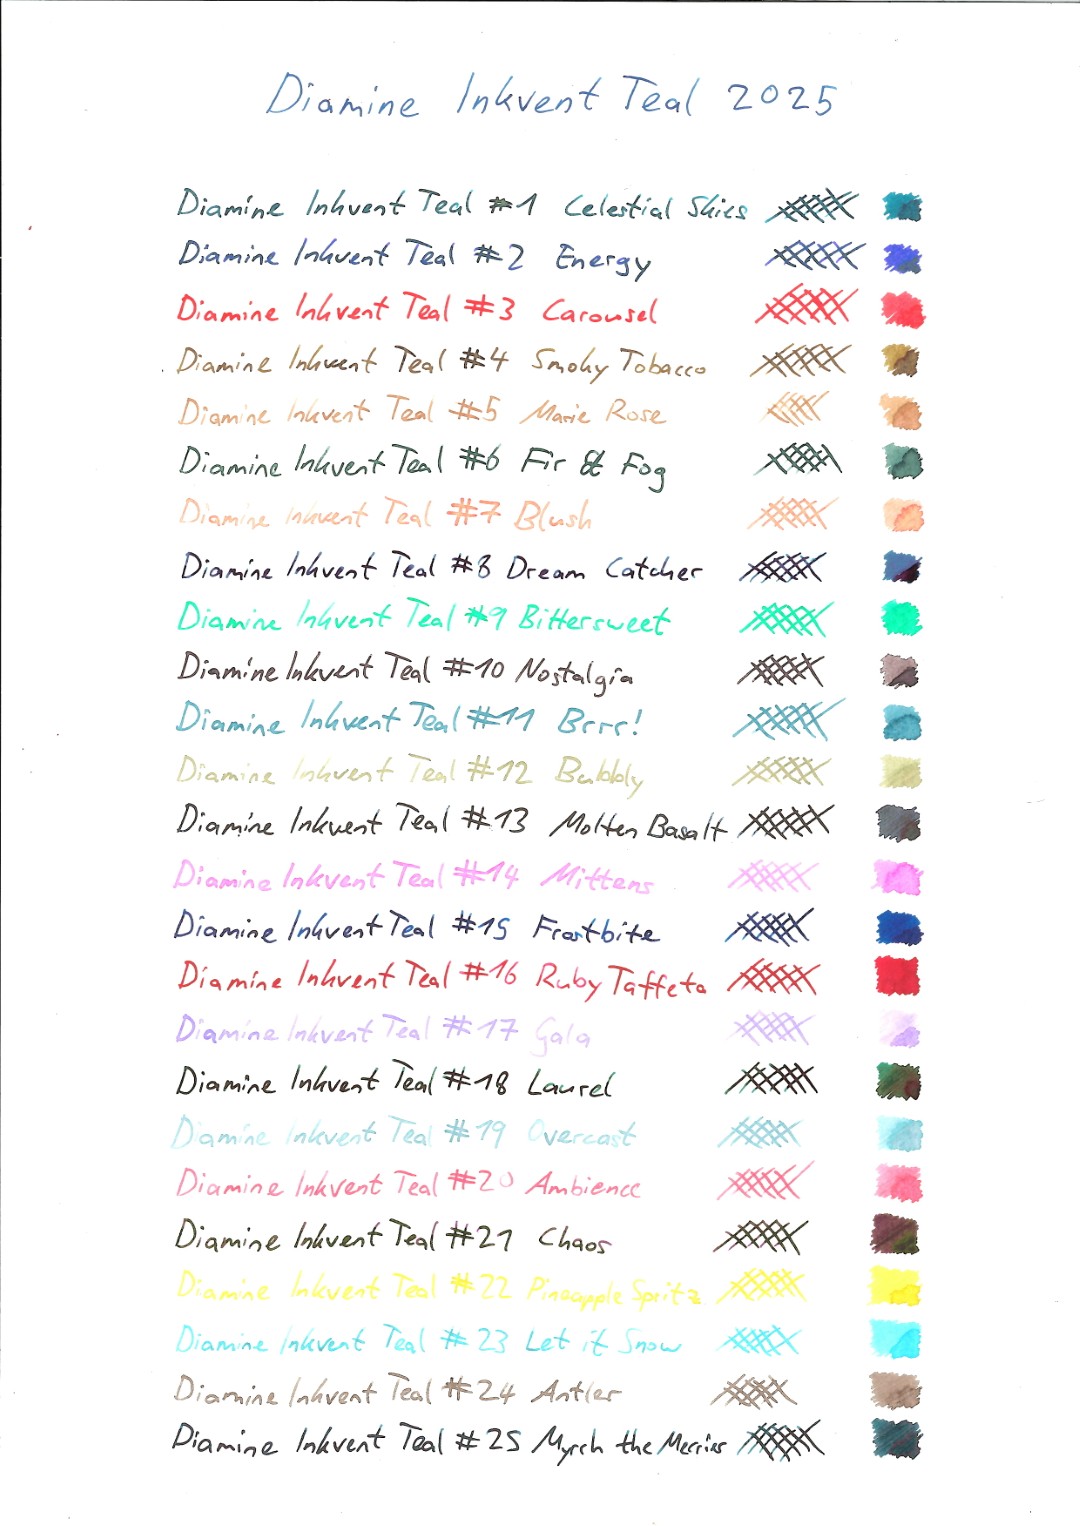 Diamine Inkvent Teal 2025
Diamine Inkvent Teal #1 Celestial Skies
Diamine Inkvent Teal #2 Energy
Diamine Inkvent Teal #3 Carousel
Diamine Inkvent Teal #4 Smoky Tobacco
Diamine Inkvent Teal #5 Marie Rose
Diamine Inkvent Teal #6 Fir & Fog
Diamine Inkvent Teal #7 Blush
Diamine Inkvent Teal #8 Dream Catcher
Diamine Inkvent Teal #9 Bittersweet
Diamine Inkvent Teal #10 Nostalgia
Diamine Inkvent Teal #11 Brrr!
Diamine Inkvent Teal #12 Bubbly
Diamine Inkvent Teal #13 Molten Basalt
Diamine Inkvent Teal #14 Mittens
Diamine Inkvent Teal #15 Frostbite
Diamine Inkvent Teal #16 Ruby Taffeta
Diamine Inkvent Teal #17 Gala
Diamine Inkvent Teal #18 Laurel
Diamine Inkvent Teal #19 Overcast
Diamine Inkvent Teal #20 Ambience
Diamine Inkvent Teal #21 Chaos
Diamine Inkvent Teal #22 Pineapple Spritz
Diamine Inkvent Teal #23 Let it Snow
Diamine Inkvent Teal #24 Antler
Diamine Inkvent Teal #25 Myrrh the Merrier